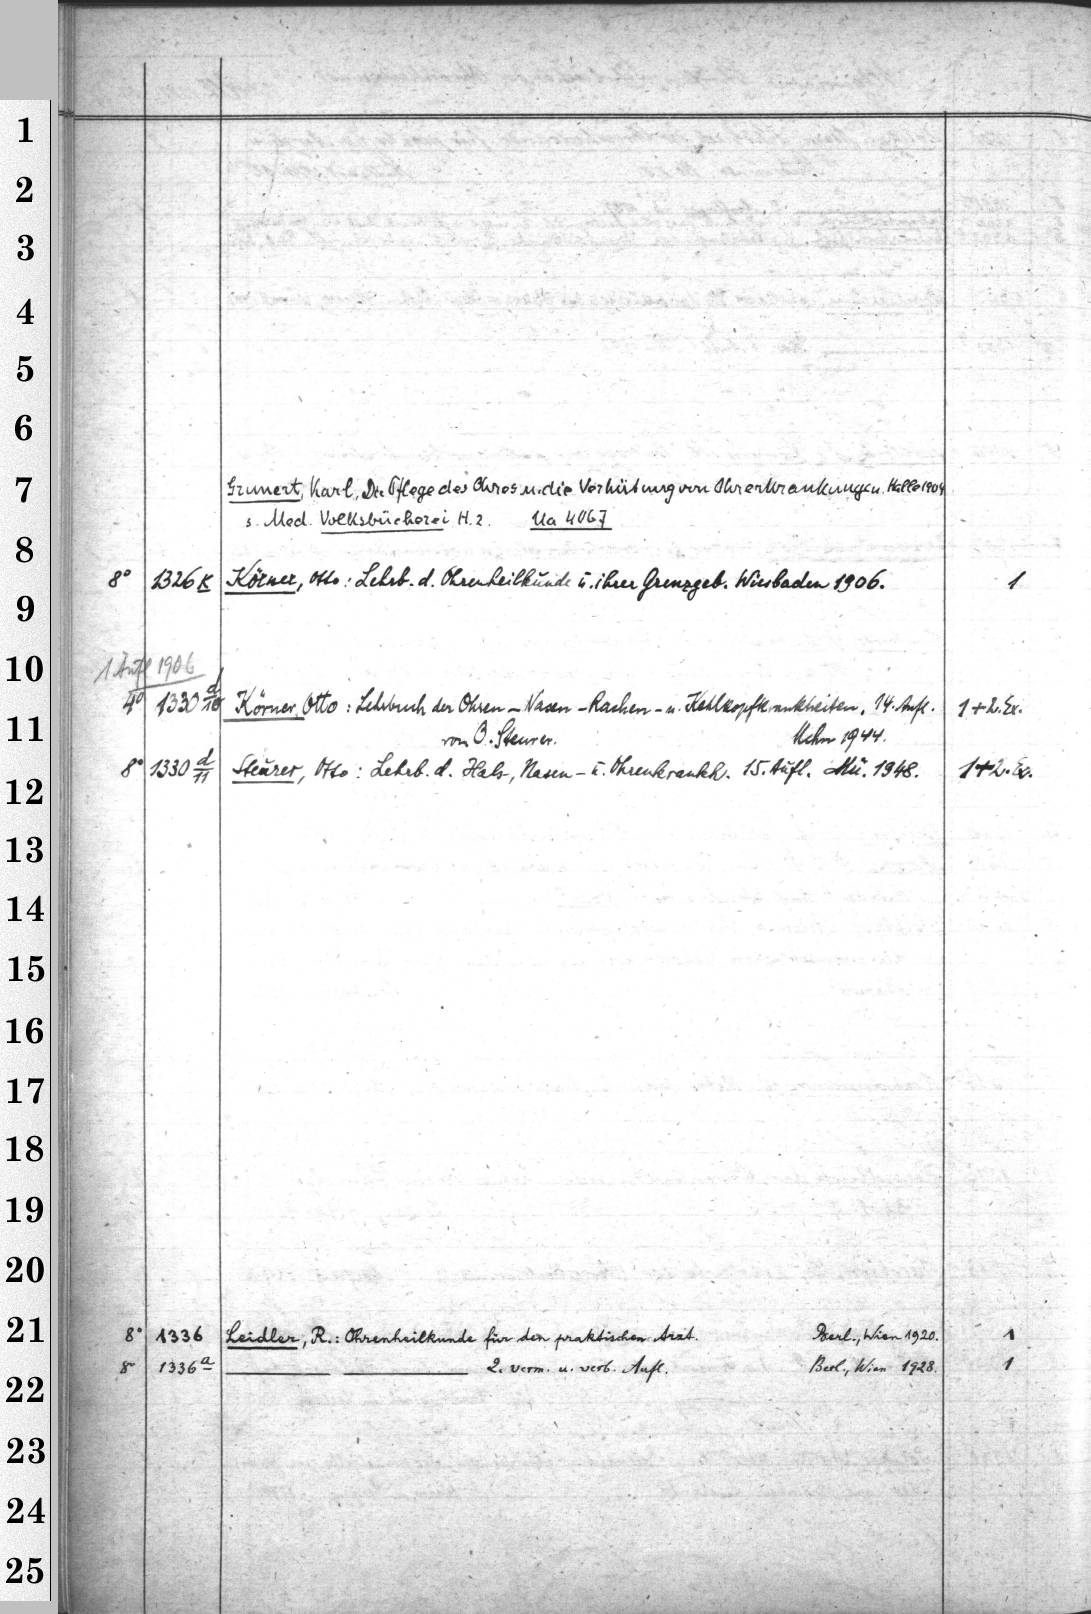 1
2
3
4
5
6
7
Grunert, Karl, Die Pflege des Ohres u. die Verhütung von Ohrerkrankungen. Halle 1904
s. Med. Volksbücherei H. 2. Ua 4067
8
8° 1326 K Körner, Otto: Lehrb. d. Ohrenheilkunde u. ihrer Grenzgeb. Wiesbaden 1906. 1
9
10
1 Aufl 1906
4° 1330 d/10 Körner, Otto: Lehrbuch der Ohren- Nasen- Rachen- u. Kehlkopfkrankheiten, 14. Aufl. 1+2. Ex.
11
von O. Steurer. Mchn 1944.
8° 1330 d/11 Steurer, Otto: Lehrb. d. Hals, Nasen- u. Ohrenkrankh. 15. Aufl. Mü. 1948. 1+2. Ex.
12
13
14
15
16
17
18
19
20
21
8° 1336 Leidler, R.: Ohrenheilkunde für den praktischen Arzt. Berl., Wien 1920. 1
8° 1336a 2. verm. u. verb. Aufl. Berl., Wien 1928. 1
22
23
24
25